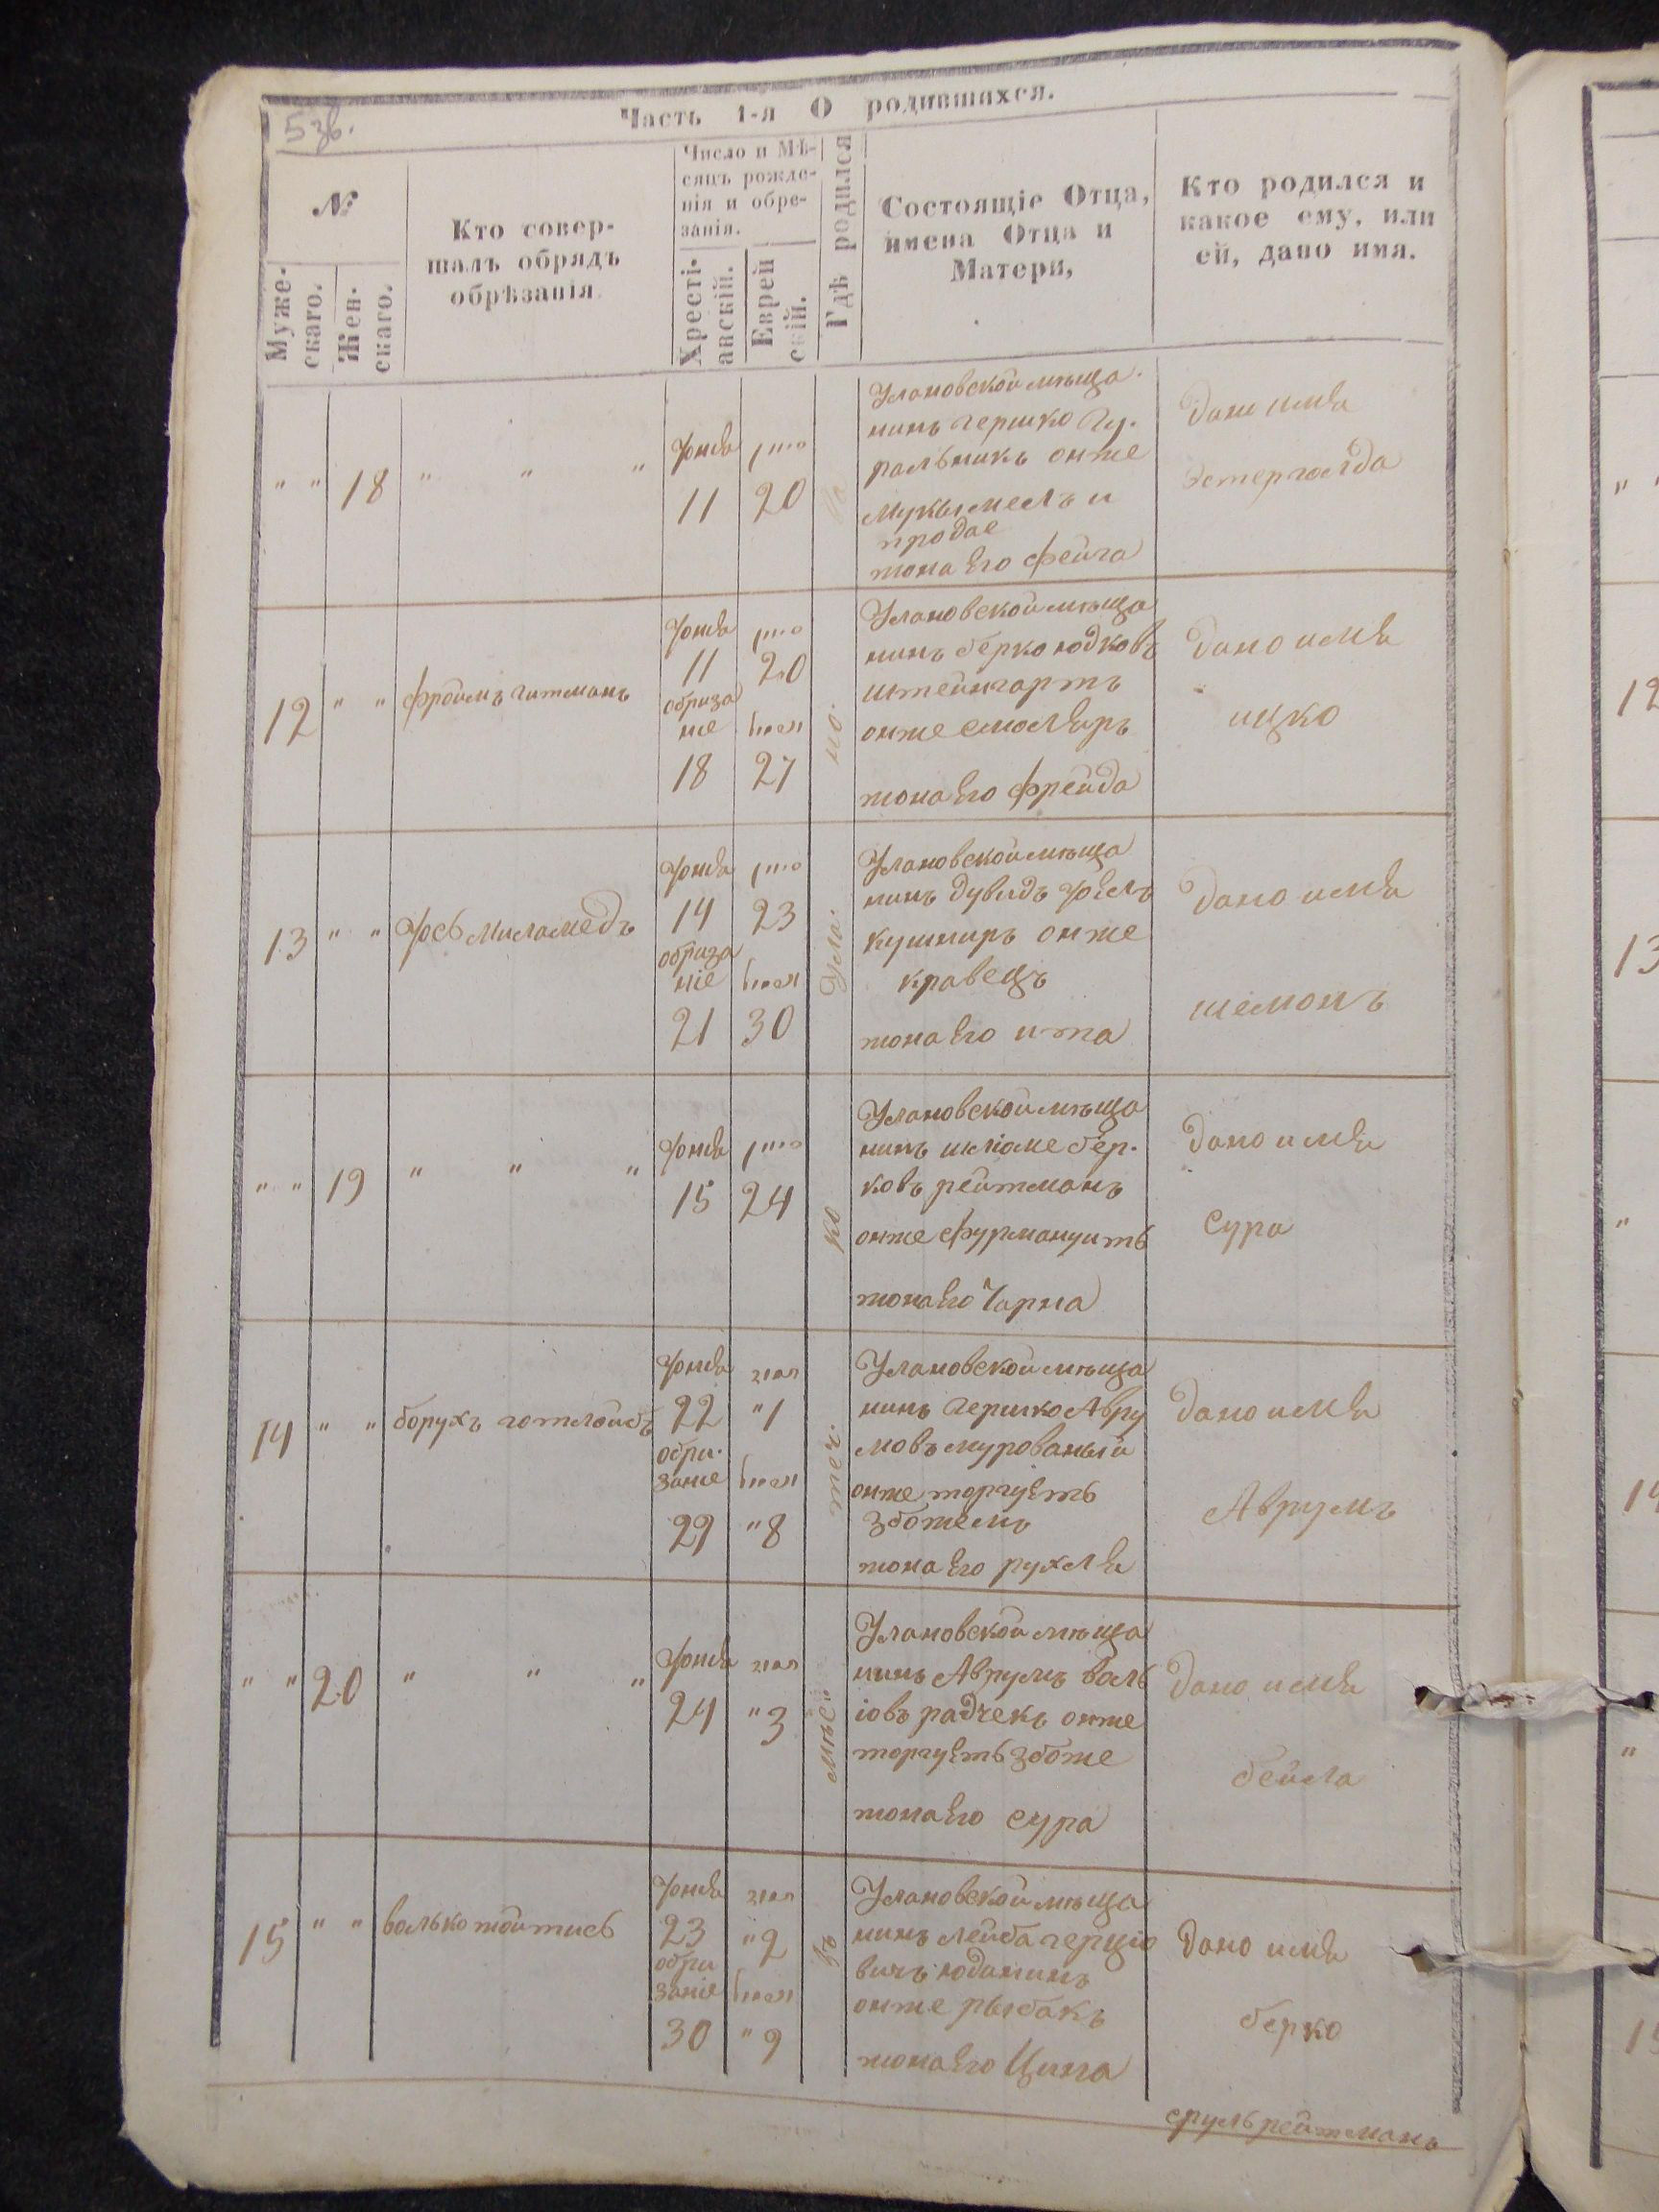 Часть 1-я О родившихся.
5 зв.
№
Муже-
скаго.
Жен-
скаго.
Кто совер-
шалъ обрядъ
обрѣзанія
Число и Мѣ-
сяцъ рожде-
нія и обре-
занія.
Хресті-
анскій.
Еврей
скій.
Гдѣ родился
Состоящіе Отца,
имена Отца и
Матери,
Кто родился и
какое ему, или
ей, дано имя.
въ мѣс. теч. ко Ула. но.
" " 18 " " "
Юня
11 20
Улановской мѣща
нинъ гершко Гу.
ральникъ онже
мукы мелъ и
продае
жона Его фейга
дано имя
Эстер голда
12 " " фроимъ гитманъ
Юня
11 20
обриза
ние
18 27
Улановской мѣща
нинъ берко юдковъ
штейнгартъ
онже смоляръ
жона Его фрейда
дано имя
ицко
13 " " Юсь миламедъ
Юня
14 23
обриза
ніе
21 30
Улановской мѣща
нинъ дувидъ
кушниръ онже
кравецъ
жона Его ита
дано имя
шемонъ
" " 19 " " "
Юня
15 24
Улановской мѣща
нинъ шліоме бер.
ковъ рейтманъ
онже фурмануить
жона Его Чарна
дано имя
Сура
14 " " борухъ готлойбъ
Юня
22 "1
обри.
зание
29 "8
Улановской мѣща
нинъ гершко Авру
мовъ мурованый
онже торгуЕть
збожемъ
жона Его рухля
дано имя
Аврумъ
" " 20 " " "
Юня
24 "3
Улановской мѣща
нинъ Аврумъ воль
іовъ радчекъ онже
торгуЕть збоже
жона Его сура
дано имя
бейла
15 " " волько
Юня
23 "2
обри
заніе
30 "9
Улановской мѣща
нинъ лейба герціо
вичъ юданинъ
онже рыбакъ
жона Его Цина
дано имя
берко
сруль рейтманъ